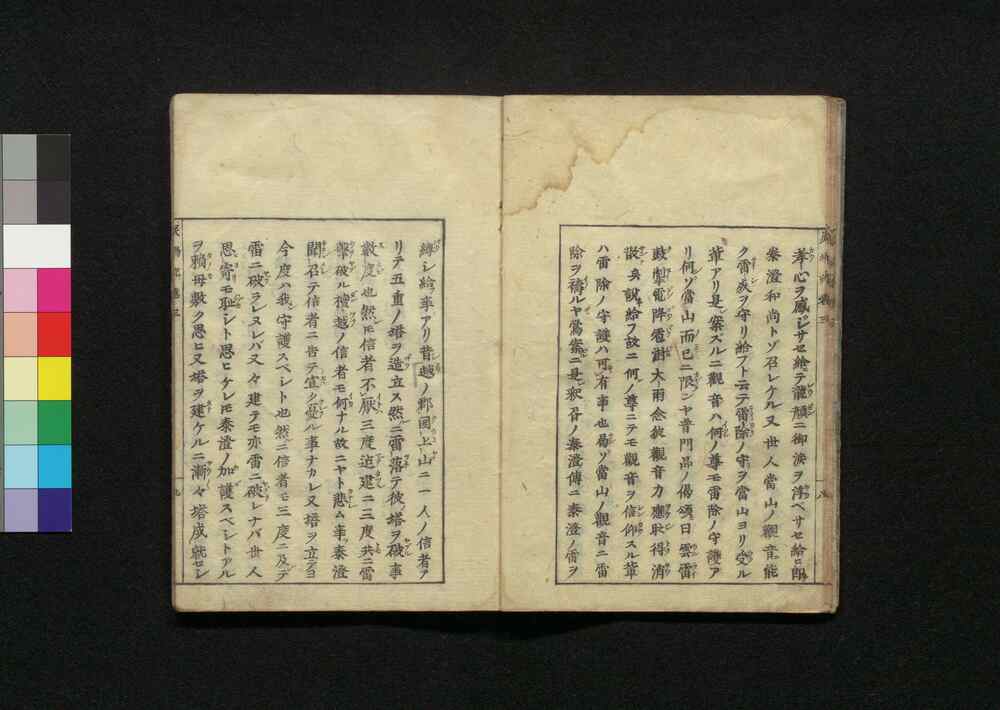 孝心ヲ感ジサセ給テ龍顔ニ御涙ヲ浮ベサセ給ヒ即
泰澄和尚トゾ召レケル又世人當山ノ觀音能
ク雷敌ヲ守リ給フト云テ雷除ノ守ヲ當山ヨリ受ル
輩アリ是ヲ案ズルニ觀音ハ何ノ尊モ雷除ノ守護ア
リ何ゾ當山而已ニ限ンヤ普門品ノ偈頌曰雲雷
鼓掣電降雹澍大雨念彼觀音力應時得消
散矣説給フ故ニ何ノ尊ニテモ觀音ヲ信仰スル輩
ハ雷除ノ守護ハ可有事也曷ゾ當山ノ觀音ニ雷
除ヲ禱ルヤ當案ニ是釈書ノ泰澄傳ニ泰澄ノ雷ヲ
縛シ給フ事アリ昔越ノ郡國上山ニ一人ノ信者ア
リテ五重ノ塔ヲ造立ス然ニ雷落テ彼ノ塔ヲ破事
數度也然モ信者不厭三度迄建ニ三度共ニ雷
擊破ル檀越ノ信者モ何ナル故ニヤト悲ム事泰澄
聞召テ信者ニ告テ宣ク憂ル事ナカレ又塔ヲ立テヨ
今度ハ我守護スベシト也然ニ信者モ三度ニ及テ
雷ニ破ラレヌレバ又々建テモ亦雷ニ破レナバ世人
思寄モ恥シト思ヒケレモ泰澄ノ加護スベシトアル
ヲ賴母敷ク思ヒ又塔ヲ建ケルニ漸々塔成就セシ